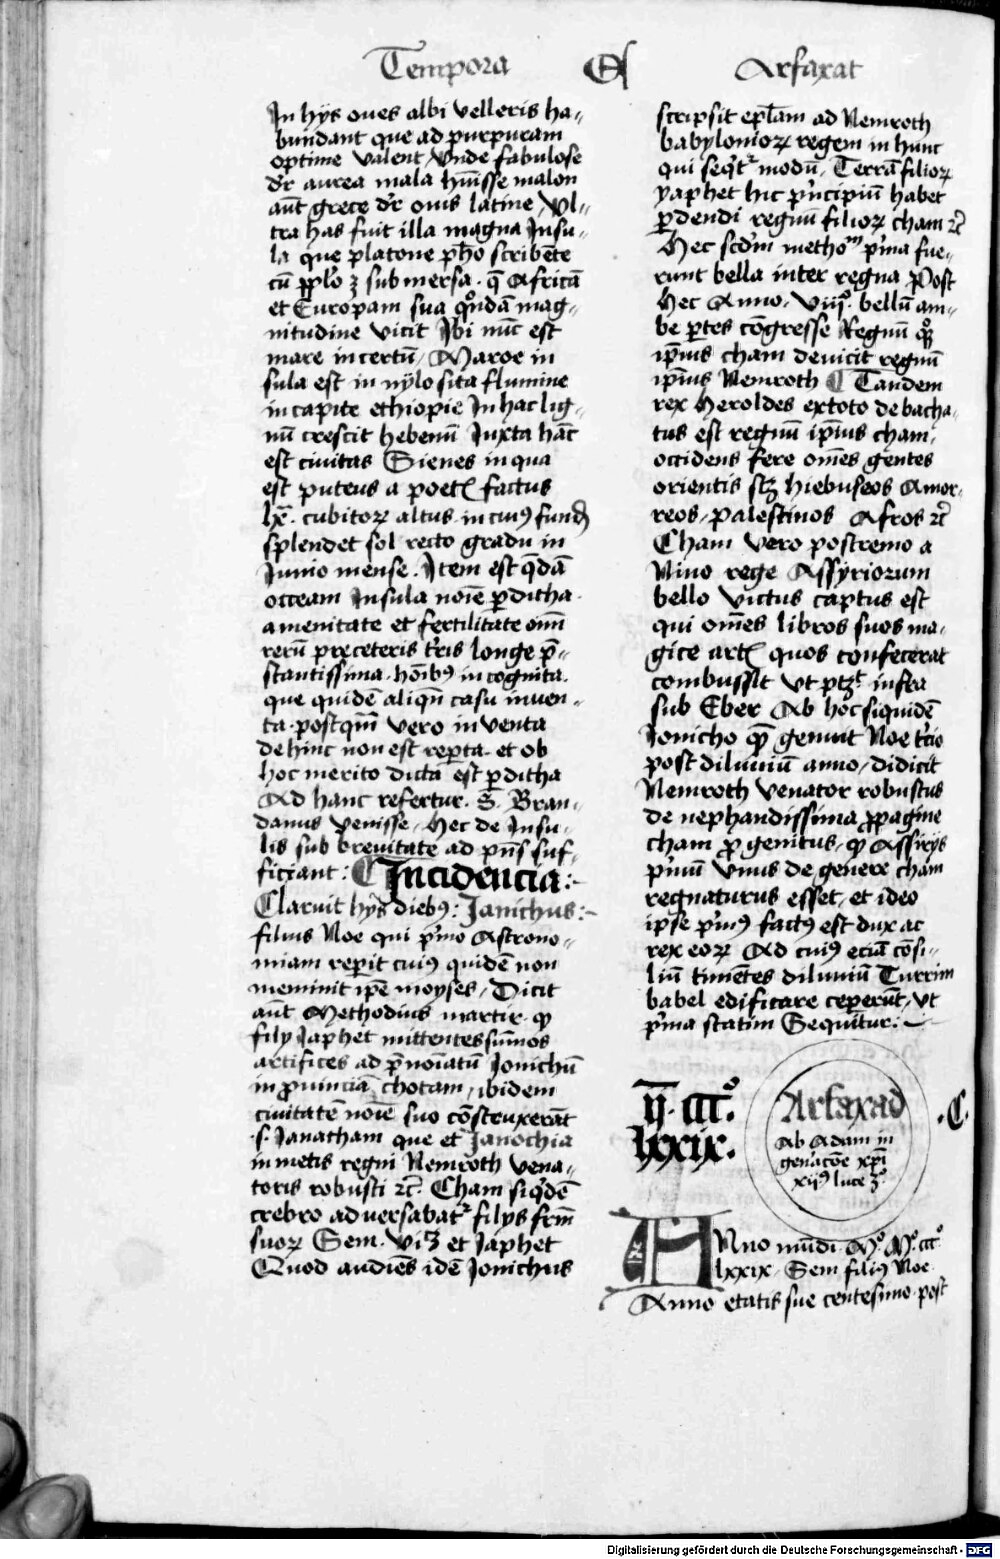 Tempora Arfaxat
In hijs oues albi velleris ha„
bundant que ad purpuram
optime valent, Vnde fabulose
dr̄ aurea mala hūisse malon
aūt grece dr̄ ouis latine, Vl„
tra has fuit illa magna Insu„
la que platone ph̄o scribēte
cū pp̄lo submersa. q̄ Africā
et Europam sua qͦndā mag„
nitudine vicit Ibi nūc est
mare incertū, Maroe in
sula est in nÿlo sita flumine
in capite ethiopie In hac lig„
nū crescit hebenū Iuxta hāc
est ciuitas Sienes in qua
est puteus a poetꝭ factus
lx̄. cubitoꝝ altus. in cuiꝰ fundo
splendet sol recto gradu in
Junio mense. Item est q̄dā
occeani Insula noīe ꝑditha.
amenitate et fertilitate oīm
rerū preceteris tr̄is longe p̄„
stantissima. hōibꝰ incognita.
que quidē aliqn̄ casu inuen„
ta. postqm̄ vero inventa
dehinc non est reꝑta. et ob
hoc merito dicta est ꝑditha
Ad hanc refertur. S. Bran„
danus venisse, Hec de Insu„
lis sub breuitate ad pn̄s suf„
ficiant: ¶ Incidencia:
Claruit hijs diebꝰ: Janichus:
filius Noe qui p̄mo Astrono„
miam reꝑit cuiꝰ quidē non
meminit ip̄e moyses, Dicit
aūt Methodius martir. ꝙ
filij Iaphet mittentes sūmos
artifices ad p̄noīatū Jonichū
in ꝓuinciā chotam, ibidem
ciuitatē noīe suo cōstruxerāt
.s. Janatham que et Janochia
in metis regni Nemroth vena„
toris robusti ꝛc̄. Cham siqͥdē
crebro adversabatᷣ filijs frm̄
suoꝝ Sem. vꝫ et Iaphet
Quod audiēs idē Jonichus
scripsit epl̄am ad Nemroth
babylonioꝝ regem in hunc
qui seqͥtᷣ modū, Terrā filioꝝ
yaphet hic p̄ncipiū habet
ꝑdendi regnū filioꝝ cham ꝛc̄
Hec scd̄m methoᵐ p̄ma fue„
runt bella inter regna Post
hec Anno. viijͦ. bellū am„
be ꝑtes cōgresse Regnū qͦꝫ
ip̄ius cham deuicit regnū
ip̄ius Nemroth ¶ Tandem
rex Heroldes ex toto debacha„
tus est regnū ip̄ius cham,
occidens fere om̄es gentes
orientis scꝫ hiebuseos Amor„
reos, palestinos Afros ꝛc̄
Cham vero postremo a
Nino rege Assÿriorum
bello victus captus est
qui om̄es libros suos ma„
gice artꝭ quos confecerat
combussit vt ptꝫ infra
sub Eber Ab hoc siquidē
Jonicho genuit Noe tr̄cio
post diluuiū anno, didicit
Nemroth venator robustus
de nephandissima ꝓpagine
cham ꝓgenitus, ꝙ Assirijs
p̄mū vnus de genere cham
regnaturus esset, et ideo
ipse p̄mꝰ factꝰ est dux ac
rex eoꝝ Ad cuiꝰ eciā cōsi„
liū timētes diluuiū Turrim
babel edificare ceperūt, vt
p̄ma statim Sequitur:
ij. ccͦ.
lxxix.
Arfaxad
Ab Adam in
gen̄acōe xp̄i
.C.
Anno mūdi. Mͦ. Mͦ. ccͦ.
lxxix. Sem filiꝰ Noe.
Anno etatis sue centesimo. post